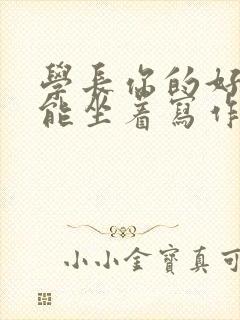 學長你的好
能坐着寫作
小小金寶真可